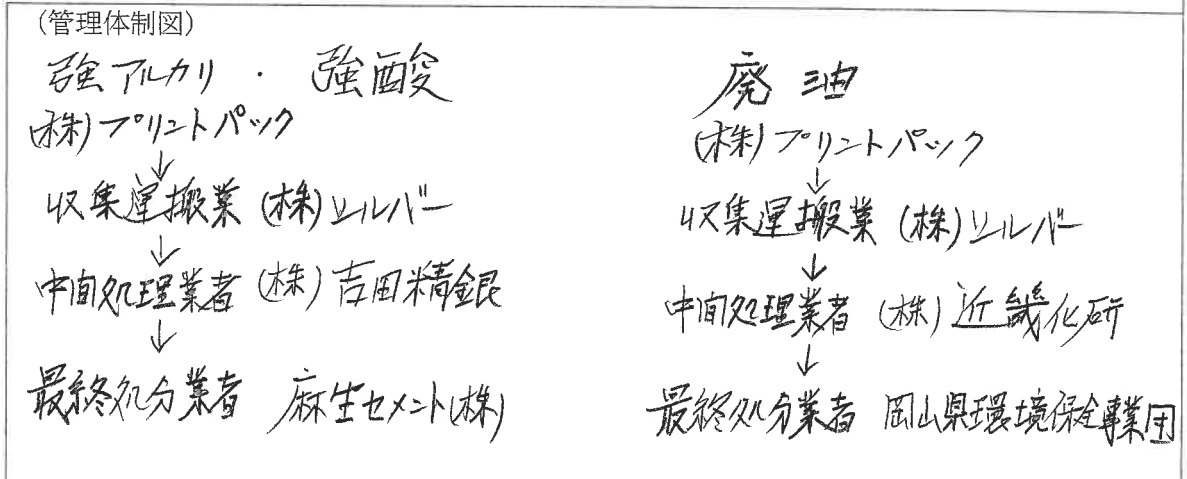 (管理体制図)
強アルカリ・強酸
(株)プリントパック
↓
収集運搬業 (株)シルバー
↓
中間処理業者 (株)吉田精銀
↓
最終処分業者 麻生セメント(株)
廃油
(株)プリントパック
↓
収集運搬業 (株)シルバー
↓
中間処理業者 (株)近畿化研
↓
最終処分業者 岡山県環境保全事業団